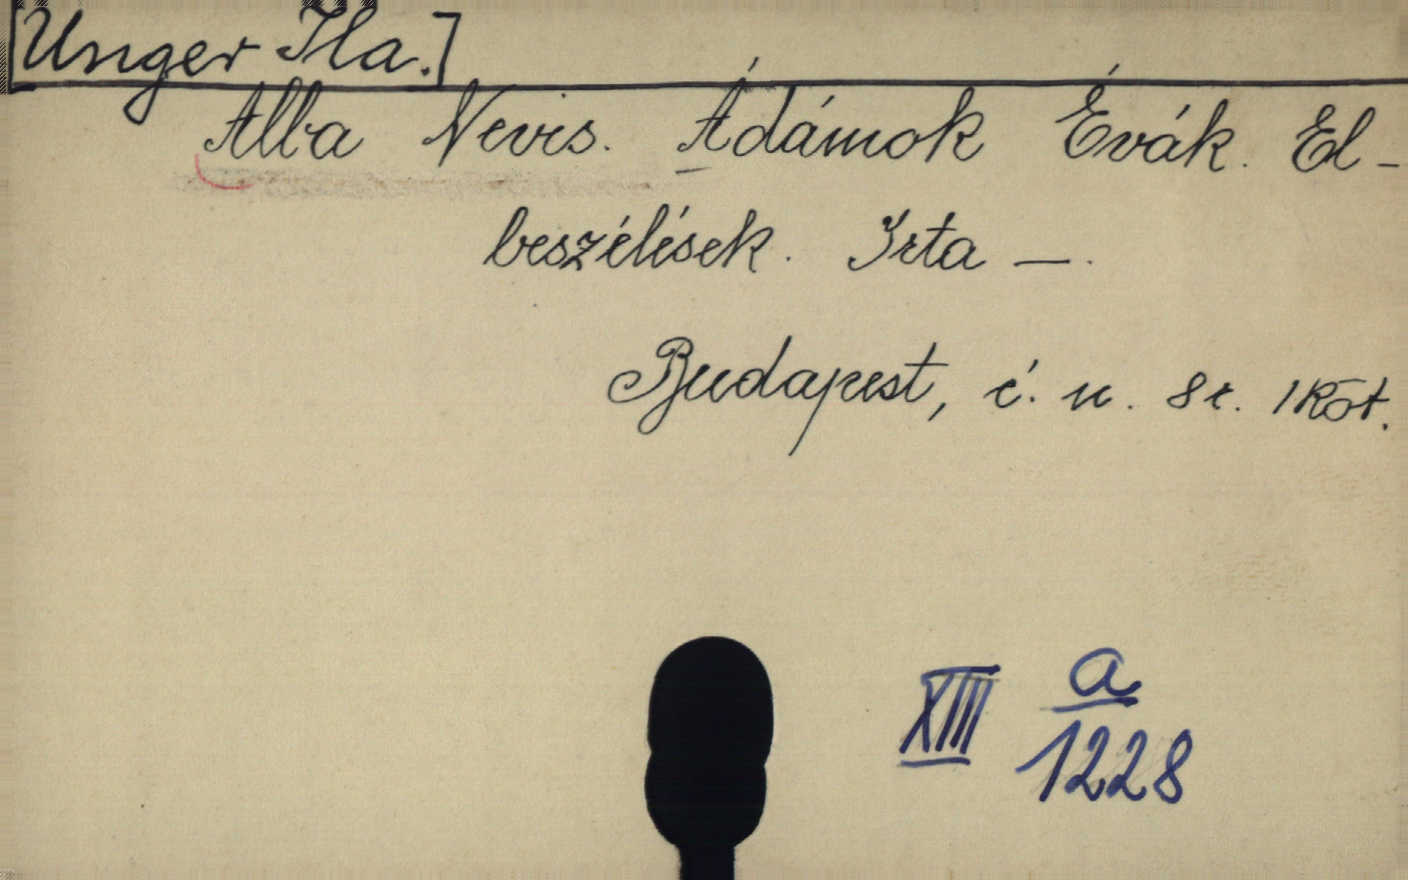 [Unger Ila.]
Alba Nevis. Ádámok Évák. El-
beszélések. Irta —.
Budapest, é. n. 8r. 1 köt.
XIII a
1228